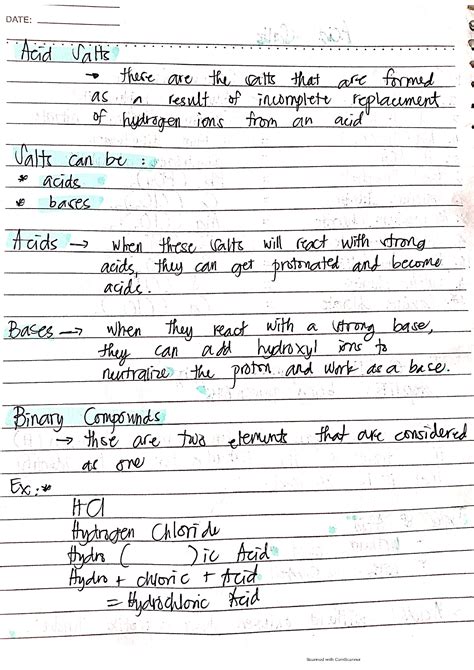 DATE:
Acid Salts
→ these are the salts that are formed
as a result of incomplete replacement
of hydrogen ions from an acid
Salts can be :
* acids
* bases
Acids → when these salts will react with strong
acids, they can get protonated and become
acids.
Bases → when they react with a strong base,
they can add hydroxyl ions to
neutralize the proton and work as a base.
Binary Compounds
→ those are two elements that are considered
as one
Ex:*
HCl
Hydrogen Chloride
Hydro ( ) ic Acid
Hydro + chloric + Acid
= Hydrochloric Acid
Scanned with CamScanner